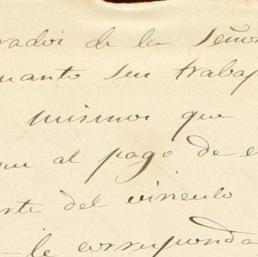 rador de la Señor
uanto su trabaj
mismos que
que al pago de e
rte del vinculo
le corresponda